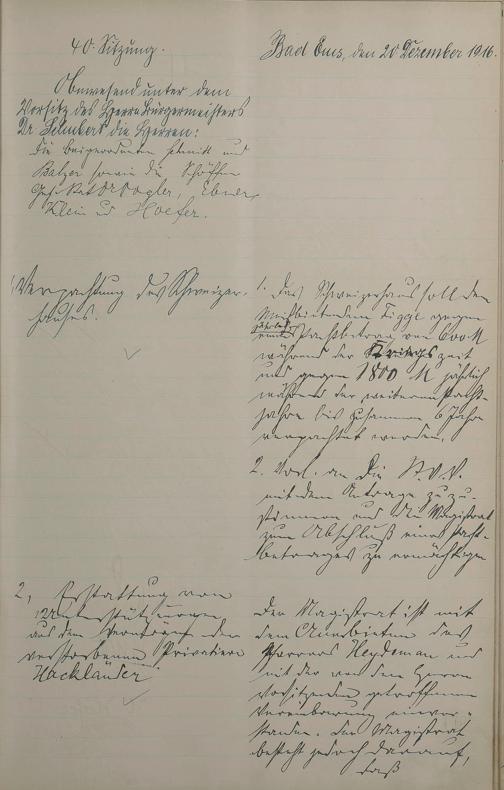 40. Sitzung.
Bad Ems, den 20 Dezember 1916.
Anwesend unter dem
Vorsitz des Herrn Bürgermeisters
Dr Schubert die Herren:
die Beigeordneten Schmitt und
Balzer sowie die Schöffen
Geh. Rat Dr Vogler, Ebner,
Klein und Hoefer.
1. Verpachtung des Schweizer-
hauses.
1. Das Schweizerhaus soll dem
Meistbietenden Figgl gegen
jährlich
Pachtbetrag von 600 M
während der Kriegszeit
und gegen 1800 M jährlich
während der weiteren Pacht-
jahre bis zusammen 6 Jahre
verpachtet werden.
2. Vorl. an die St.V.V.
mit dem Antrage zuzu-
stimmen und den Magistrat
zum Abschluß eines Pacht-
vertrages zu ermächtigen
2, Erstattung von
Unterstützungen
aus dem der
verstorbenen Privatiere
Hackländer
Der Magistrat ist mit
dem Anerbieten des
Pfarrers Heydeman und
mit der von dem Herrn
Vorsitzenden getroffenen
Vereinbarung einver-
standen. Der Magistrat
besteht jedoch darauf,
daß